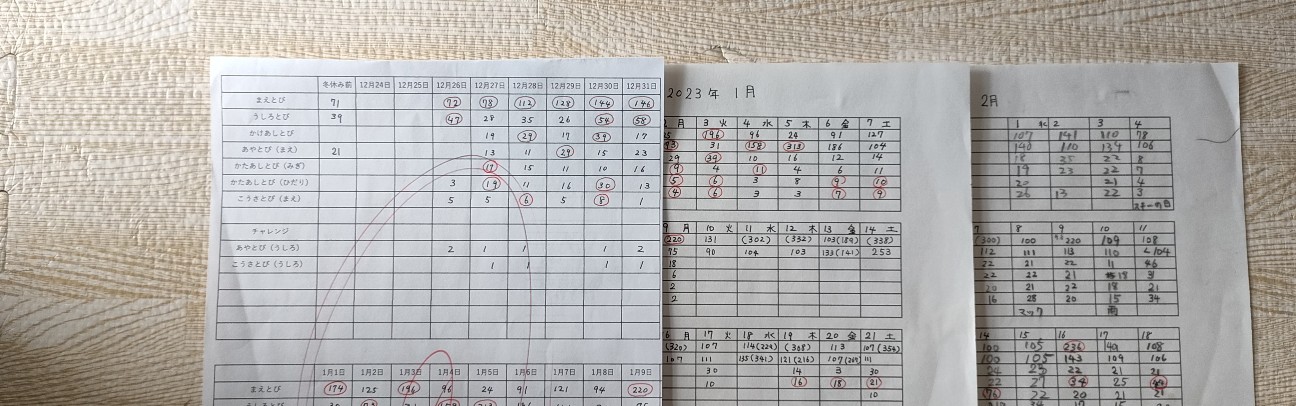 冬休み前 12月24日 12月25日 12月26日 12月27日 12月28日 12月29日 12月30日 12月31日
まえとび 71 72 78 112 128 144 146
うしろとび 39 47 28 35 26 54 58
かけあしとび 19 29 17 39 17
あやとび(まえ) 21 13 11 29 15 23
かたあしとび(みぎ) 17 15 11 10 16
かたあしとび(ひだり) 3 19 11 16 30 13
こうさとび(まえ) 5 5 6 5 8 1
チャレンジ
あやとび(うしろ) 2 1 1 1 2
こうさとび(うしろ) 1 1 1 1
1月1日 1月2日 1月3日 1月4日 1月5日 1月6日 1月7日 1月8日 1月9日
まえとび 174 125 196 96 24 91 121 94 220
2023年 1月
月 3 火 4 水 5 木 6 金 7 土
196 96 24 91 127
31 158 313 186 104
29 39 10 16 12 14
9 4 11 4 6 11
5 6 3 8 9 10
4 6 3 3 7 9
9 月 10 火 11 水 12 木 13 金 14 土
220 131 (302) (332) 103(189) (338)
75 90 104 103 133(141) 253
18
6
2
2
6 月 17 火 18 水 19 木 20 金 21 土
(320) 107 114(224) (308) 113 107(354)
107 111 135(341) 121(216) 111
30 14 3 30
10 16 18 21
10
2月
1 水 2 3 4
107 141 110 78
140 110 134 106
18 25 22 8
19 23 22 7
20 21 4
26 13 22 3
7 8 9 10 11
(300) 100 220 109 108
112 111 113 110 104
22 21 22 11 46
22 22 21 18 31
20 21 22 18 21
16 25 20 15 34
マック 雨
14 15 16 17 18
100 105 236 140 108
100 105 143 109 106
24 25 22 21 21
22 27 34 25
(76) 22 20 21 21